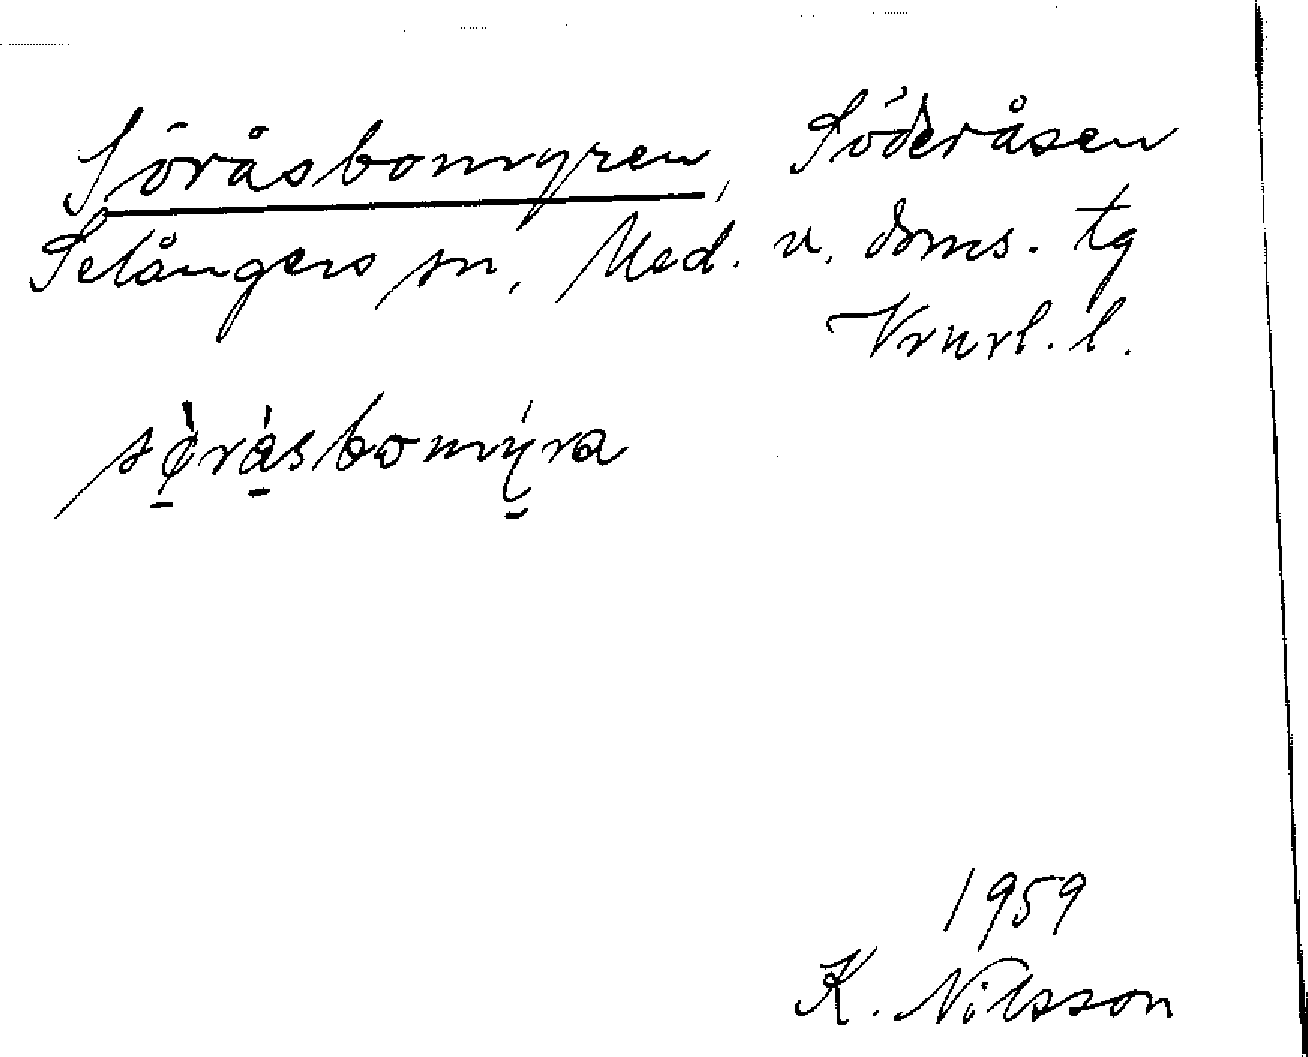 Söråsbomyren, Söderåsen
Selångers sn, Med. v. doms. tg
sö̀råsbomýra
1959
K. Nilsson